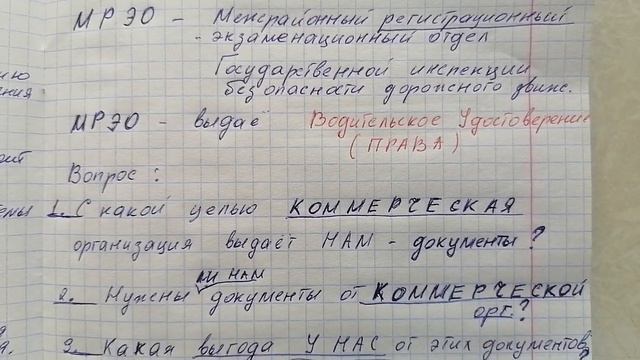 МРЭО - Межрайонный регистрационный
- экзаменационный отдел
Государственной инспекции
безопасности дорожного движ.
МРЭО - выдаё Водительское Удостоверение
(ПРАВА)
Вопрос:
1. С какой целью КОММЕРЧЕСКАЯ
организация выдаёт НАМ - документы?
2. Нужны ли НАМ документы от КОММЕРЧЕСКОЙ
орг.?
3. Какая выгода У НАС от этих документов?